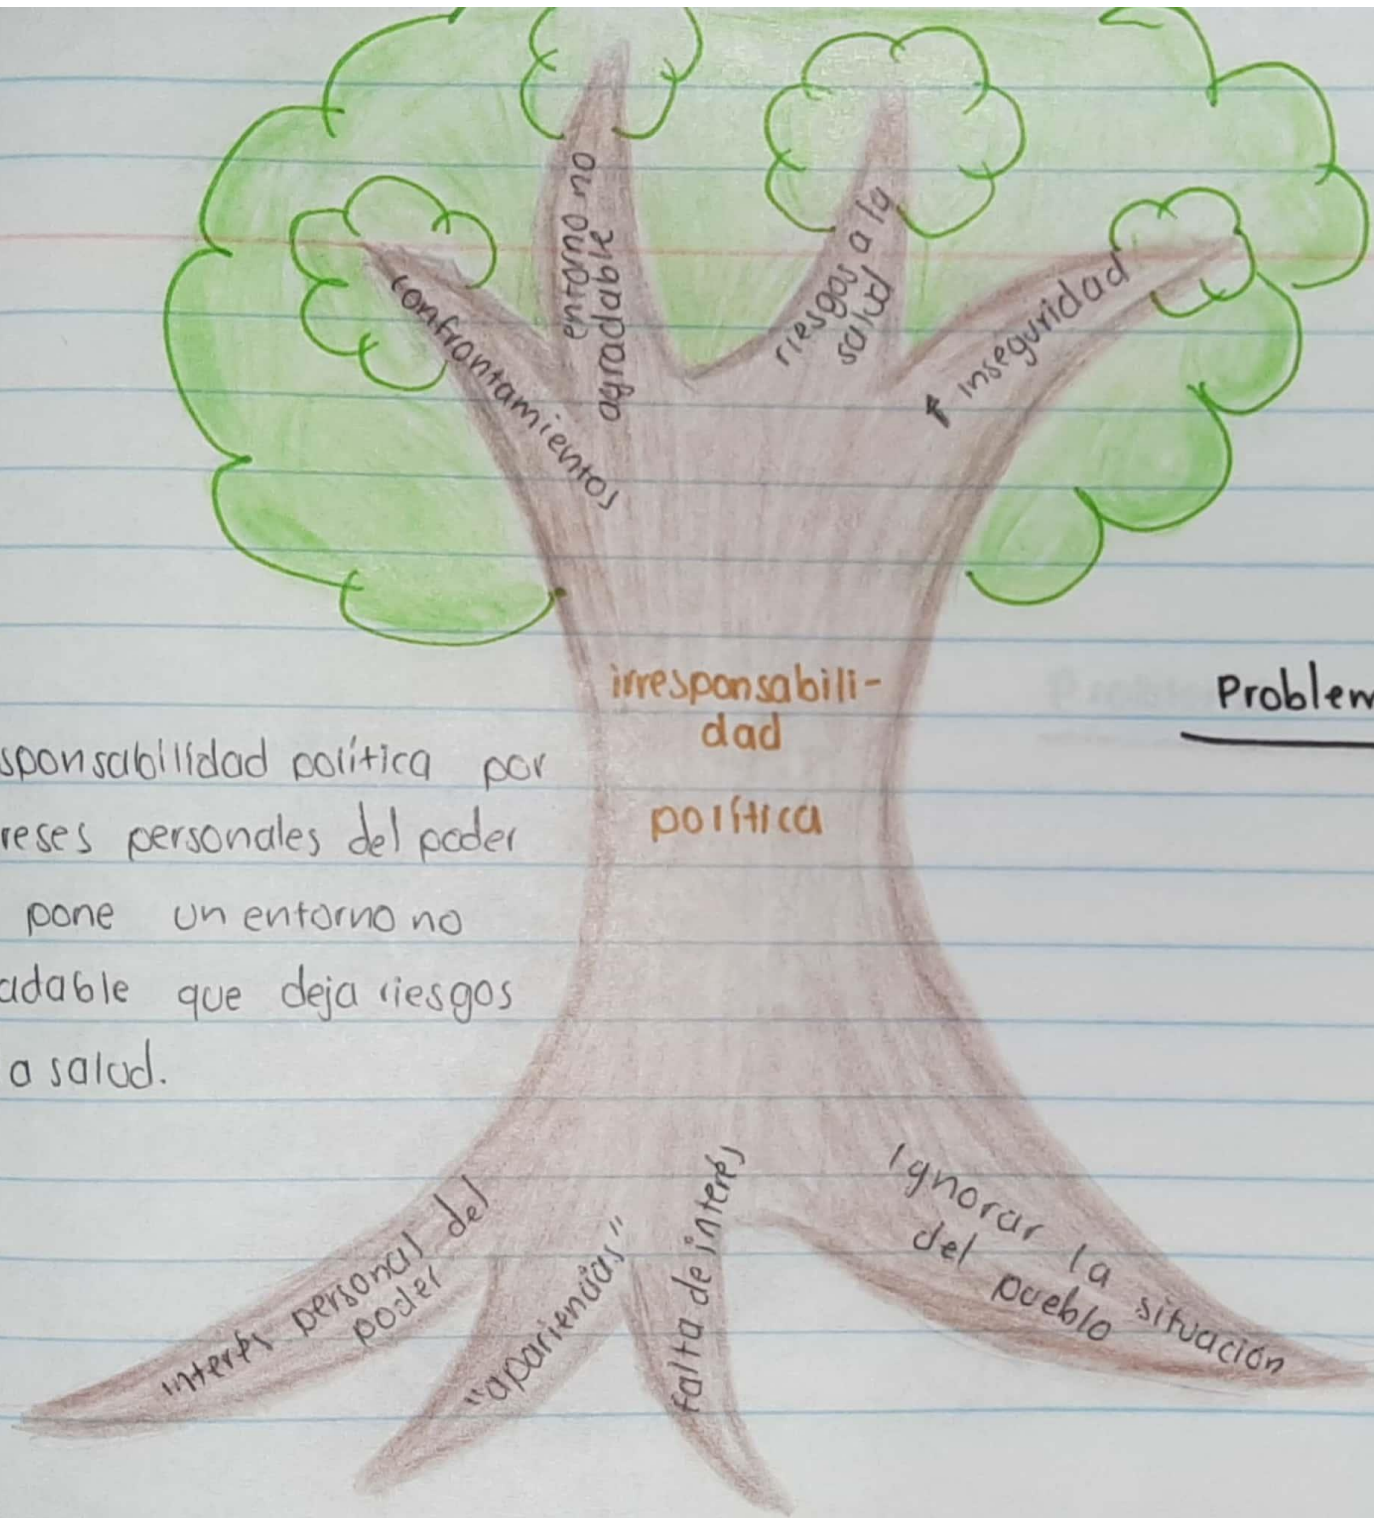 entorno no
agradable
riesgos a la
salud
confrontamientos
↑ inseguridad
irresponsabili-
dad
política
Problem
sponsabilidad política por
reses personales del poder
pone un entorno no
adable que deja riesgos
a salud.
interés personal del
poder
"apariencias"
falta de interés
Ignorar la situación
del pueblo